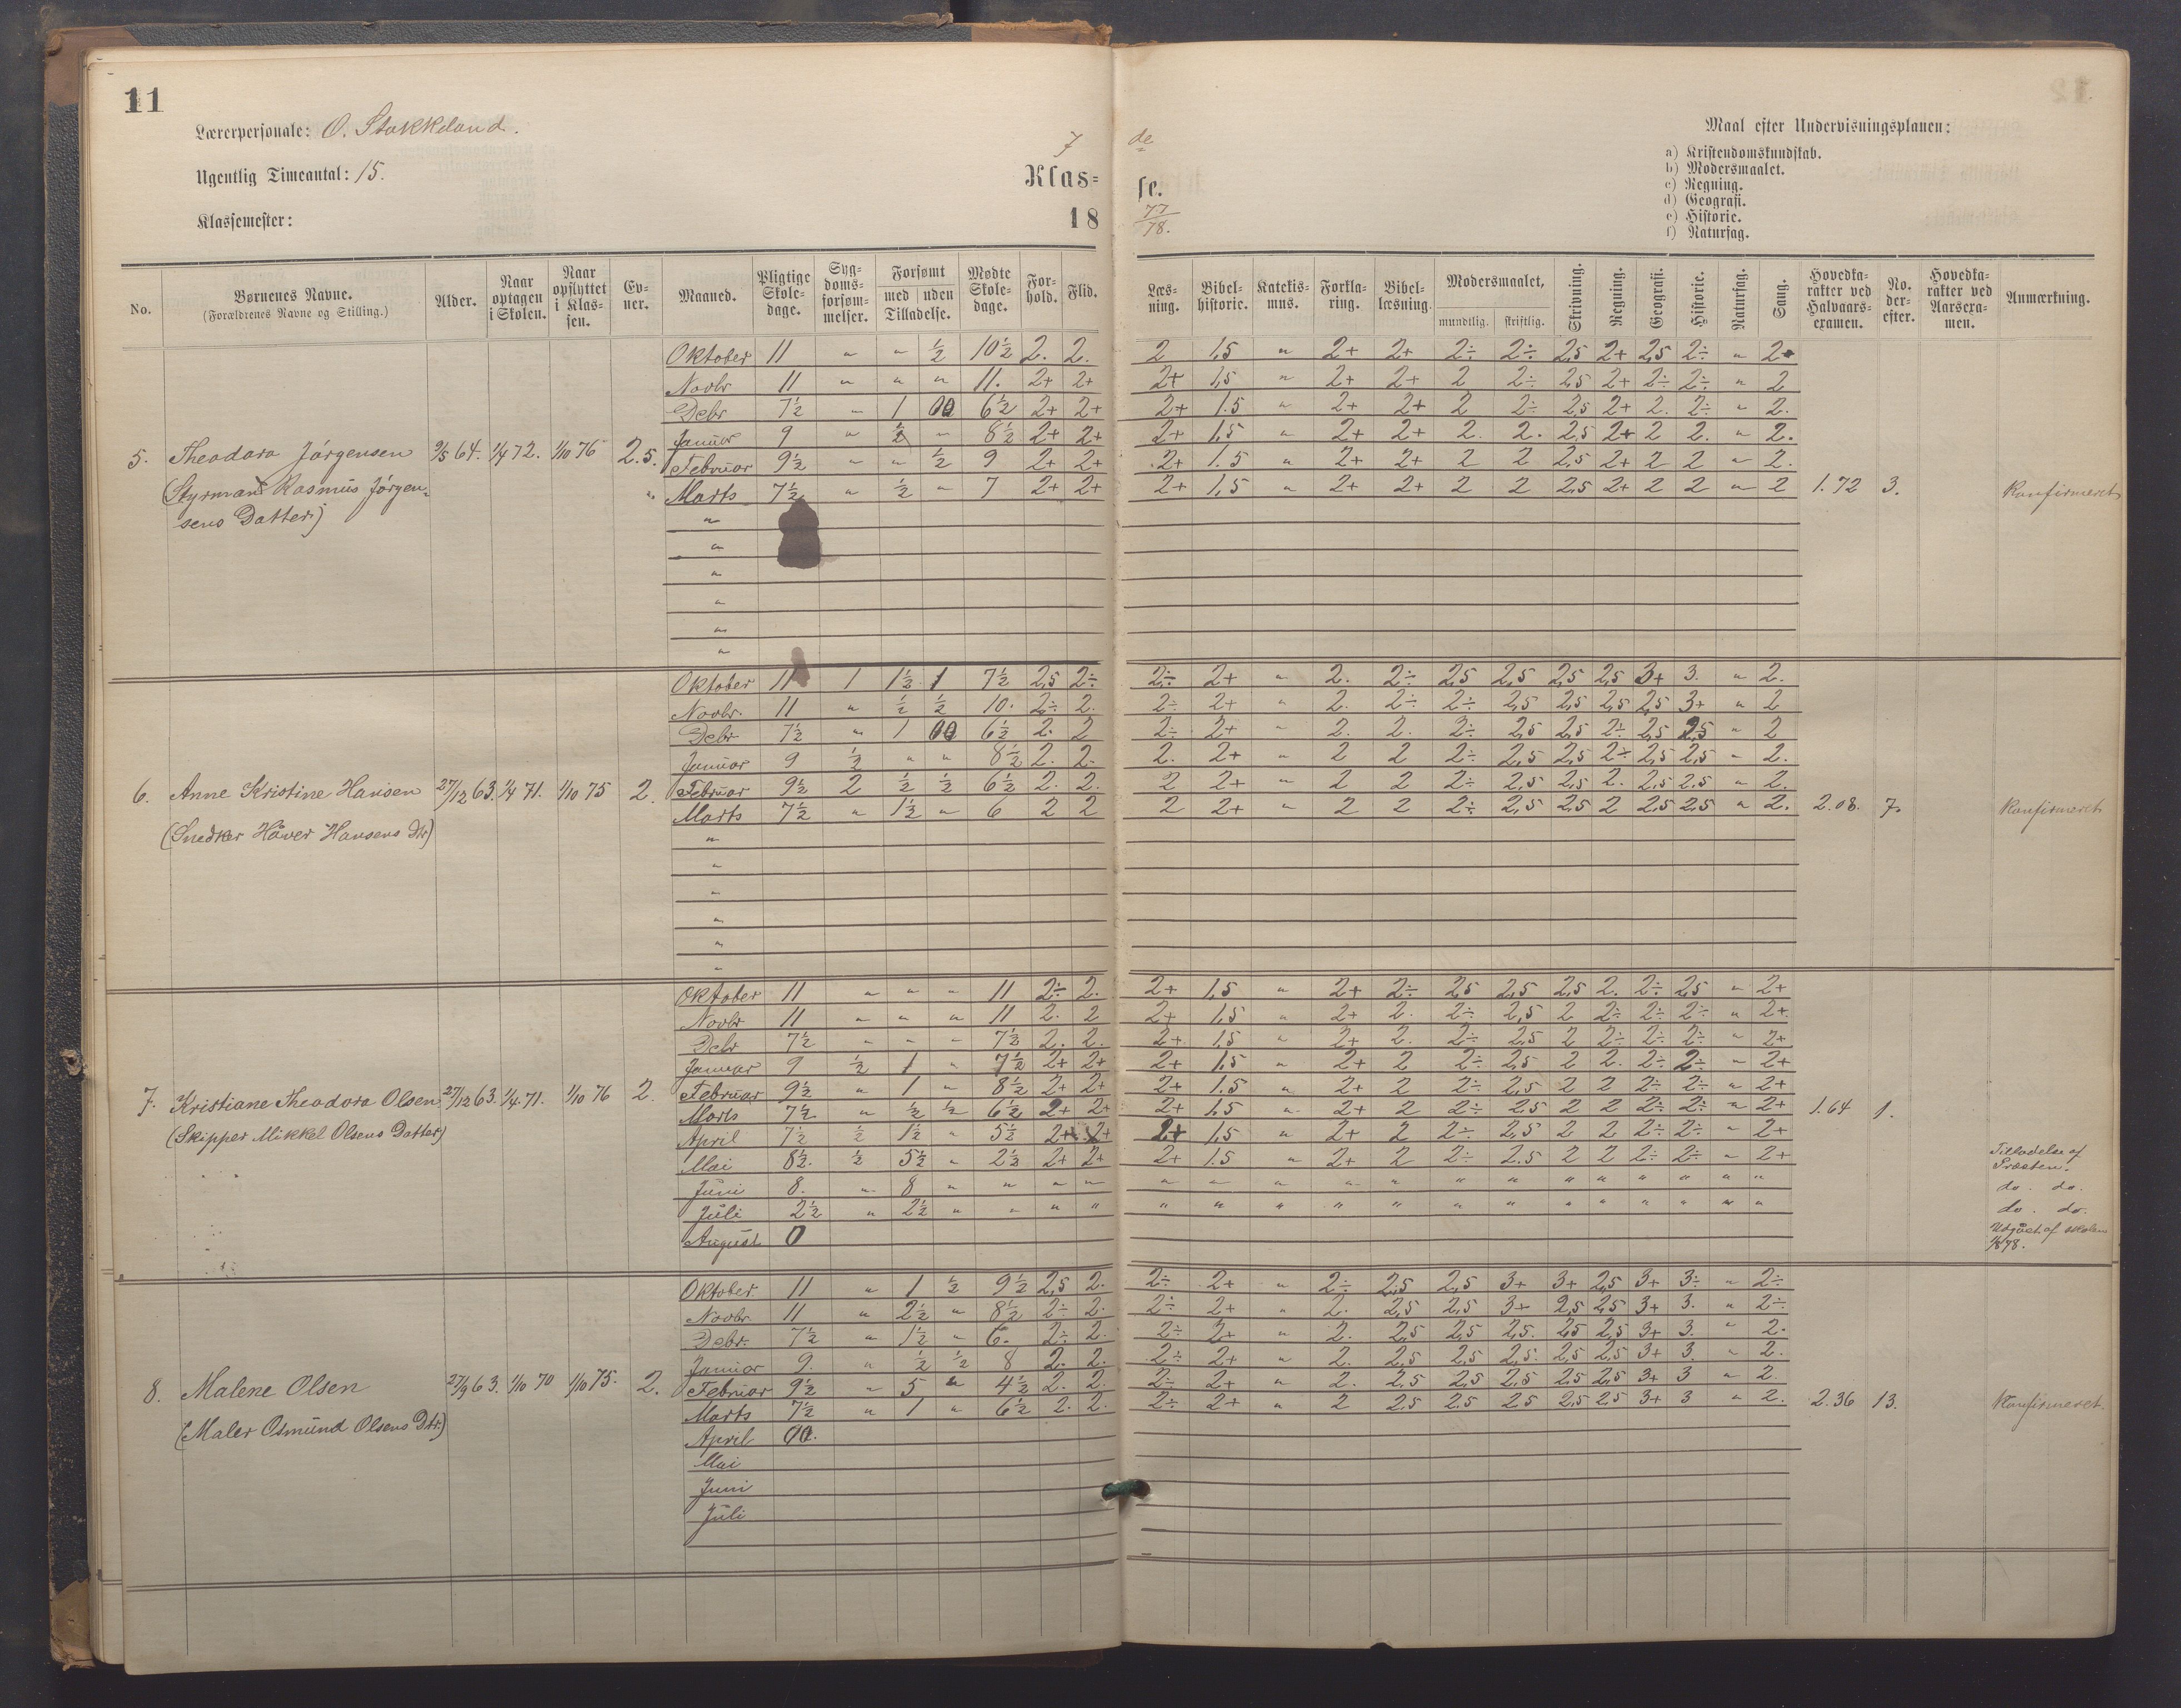 11
Lærerpersonale: O. Stakkeland.
Ugentlig Timeantal: 15.
Klassemester:
7 de
Klas= se.
18 77/78.
Maal efter Undervisningsplanen:
a) Kristendomskundskab.
b) Modersmaalet.
c) Regning.
d) Geografi.
e) Historie.
f) Naturfag.
No. | Børnenes Navne. (Forældrenes Navne og Stilling.) | Alder. | Naar optagen i Skolen. | Naar opflyttet i Klassen. | Evner. | Maaned. | Pligtige Skoledage. | Sygdomsforsømmelser. | Forsømt med uden Tilladelse. | Mødte Skoledage. | Forhold. | Flid. | Læsning. | Bibelhistorie. | Katekismus. | Forklaring. | Bibellæsning. | Modersmaalet, mundtlig. skriftlig. | Skrivning. | Regning. | Geografi. | Historie. | Naturfag. | Sang. | Hovedkarakter ved Halvaarsexamen. | No. derefter. | Hovedkarakter ved Aarsexamen. | Anmærkning.
Oktober 11 " " ½ 10½ 2. 2. 2 1,5 " 2+ 2+ 2÷ 2÷ 2,5 2+ 2,5 2÷ " 2+
Novbr 11 " " " 11. 2+ 2+ 2+ 1,5 " 2+ 2+ 2 2÷ 2,5 2+ 2÷ 2÷ " 2
Debr 7½ " 1 6½ 2+ 2+ 2+ 1.5 " 2+ 2+ 2 2÷ 2,5 2+ 2. 2÷ " 2.
Januar 9 " ½ " 8½ 2+ 2+ 2+ 1,5 " 2+ 2+ 2. 2. 2,5 2+ 2 2. " 2.
5. Theodora Jörgensen 9/5 64. 1/4 72. 1/10 76 2.5. Februar 9½ " " ½ 9 2+ 2+ 2+ 1.5 " 2+ 2+ 2 2 2,5 2+ 2 2 " 2.
(Styrmand Rasmus Jörgen= Marts 7½ " ½ " 7 2+ 2+ 2+ 1,5 " 2+ 2+ 2 2 2,5 2+ 2 2 " 2 1.72 3. Konfirmeret
sens Datter)
"
"
"
"
"
"
Oktober 11 1 1½ 1 7½ 2,5 2÷ 2÷ 2+ " 2. 2÷ 2,5 2,5 2,5 2,5 3+ 3. " 2.
Novbr. 11 " ½ ½ 10. 2÷ 2. 2÷ 2+ " 2. 2÷ 2÷ 2,5 2,5 2,5 2,5 3+ " 2
Debr 7½ " 1 6½ 2. 2 2÷ 2+ " 2. 2. 2÷ 2,5 2,5 2÷ 2,5 2,5 " 2
Januar 9 ½ " " 8½ 2. 2. 2. 2+ " 2 2 2÷ 2,5 2,5 2÷ 2,5 2,5 " 2.
6. Anne Kristine Hansen 27/12 63. 1/4 71. 1/10 75 2. Februar 9½ 2 ½ ½ 6½ 2. 2. 2 2+ " 2 2 2÷ 2,5 2,5 2. 2,5 2,5 " 2.
(Snedker Håver Hansens Dtr) Marts 7½ " 1½ " 6 2 2 2 2+ " 2 2 2÷ 2,5 2,5 2 2,5 2,5 " 2. 2.08. 7. Konfirmeret
"
"
"
"
"
"
Oktober 11 " " " 11 2÷ 2. 2+ 1,5 " 2+ 2÷ 2,5 2,5 2,5 2. 2÷ 2,5 " 2+
Novbr 11 " " " 11 2. 2 2+ 1,5 " 2+ 2. 2÷ 2,5 2 2÷ 2÷ 2÷ " 2+
Debr 7½ " " " 7½ 2. 2. 2+ 1,5 " 2+ 2. 2÷ 2,5 2 2÷ 2÷ 2÷ " 2+
Januar 9 ½ 1 " 7½ 2+ 2+ 2+ 1,5 " 2+ 2 2÷ 2,5 2 2. 2÷ 2÷ " 2+
7. Kristiane Theodora Olsen 27/12 63. 1/4. 71. 1/10 76 2. Februar 9½ " 1 " 8½ 2+ 2+ 2+ 1.5 " 2+ 2 2÷ 2,5 2 2 2÷ 2÷ " 2+
Marts 7½ " ½ ½ 6½ 2+ 2+ 2+ 1,5 " 2+ 2 2÷ 2,5 2 2 2÷ 2÷ " 2+ 1.64 1.
(Skipper Mikkel Olsens Datter) April 7½ ½ 1½ " 5½ 2+ 2+ 2+ 1,5 " 2+ 2 2÷ 2,5 2 2 2÷ 2÷ " 2+
Mai 8½. ½ 5½ " 2½ 2+ 2+ 2+ 1.5 " 2+ 2 2÷ 2.5 2 2 2÷ 2÷ " 2+ Tilladelse af Præsten.
Juni 8. " 8 " " " " " " " " " " " " " " " " " do. do.
Juli 2½ " 2½ " " " " " " " " " " " " " " " " " do. do.
August 0 Udgået af skolen 1/8 78.
Oktober 11 " 1 ½ 9½ 2,5 2. 2÷ 2+ " 2÷ 2,5 2,5 3+ 3+ 2,5 3+ 3÷ " 2÷
Novbr. 11 " 2½ " 8½ 2÷ 2. 2÷ 2+ " 2. 2,5 2,5 3+ 2,5 2,5 3+ 3. " 2÷
Debr. 7½ " 1½ " 6. 2÷ 2. 2÷ 2+ " 2. 2,5 2,5 2,5. 2,5 2,5 3+ 3. " 2.
Januar 9. " ½ ½ 8 2. 2. 2÷ 2+ " 2. 2,5 2,5 2,5. 2,5 2,5 3+ 3. " 2.
8. Malene Olsen 27/9 63. 1/10 70 1/10 75. 2. Februar 9½ " 5 " 4½ 2. 2. 2÷ 2+ " 2. 2,5 2,5 2,5 2,5 2,5 3+ 3 " 2.
Marts 7½ " 1 " 6½ 2. 2. 2÷ 2+ " 2 2,5 2,5 2,5 2,5 2,5 3+ 3 " 2. 2.36 13. Konfirmeret.
(Maler Osmund Olsens Dtr.) April
Mai
Juni
Juli